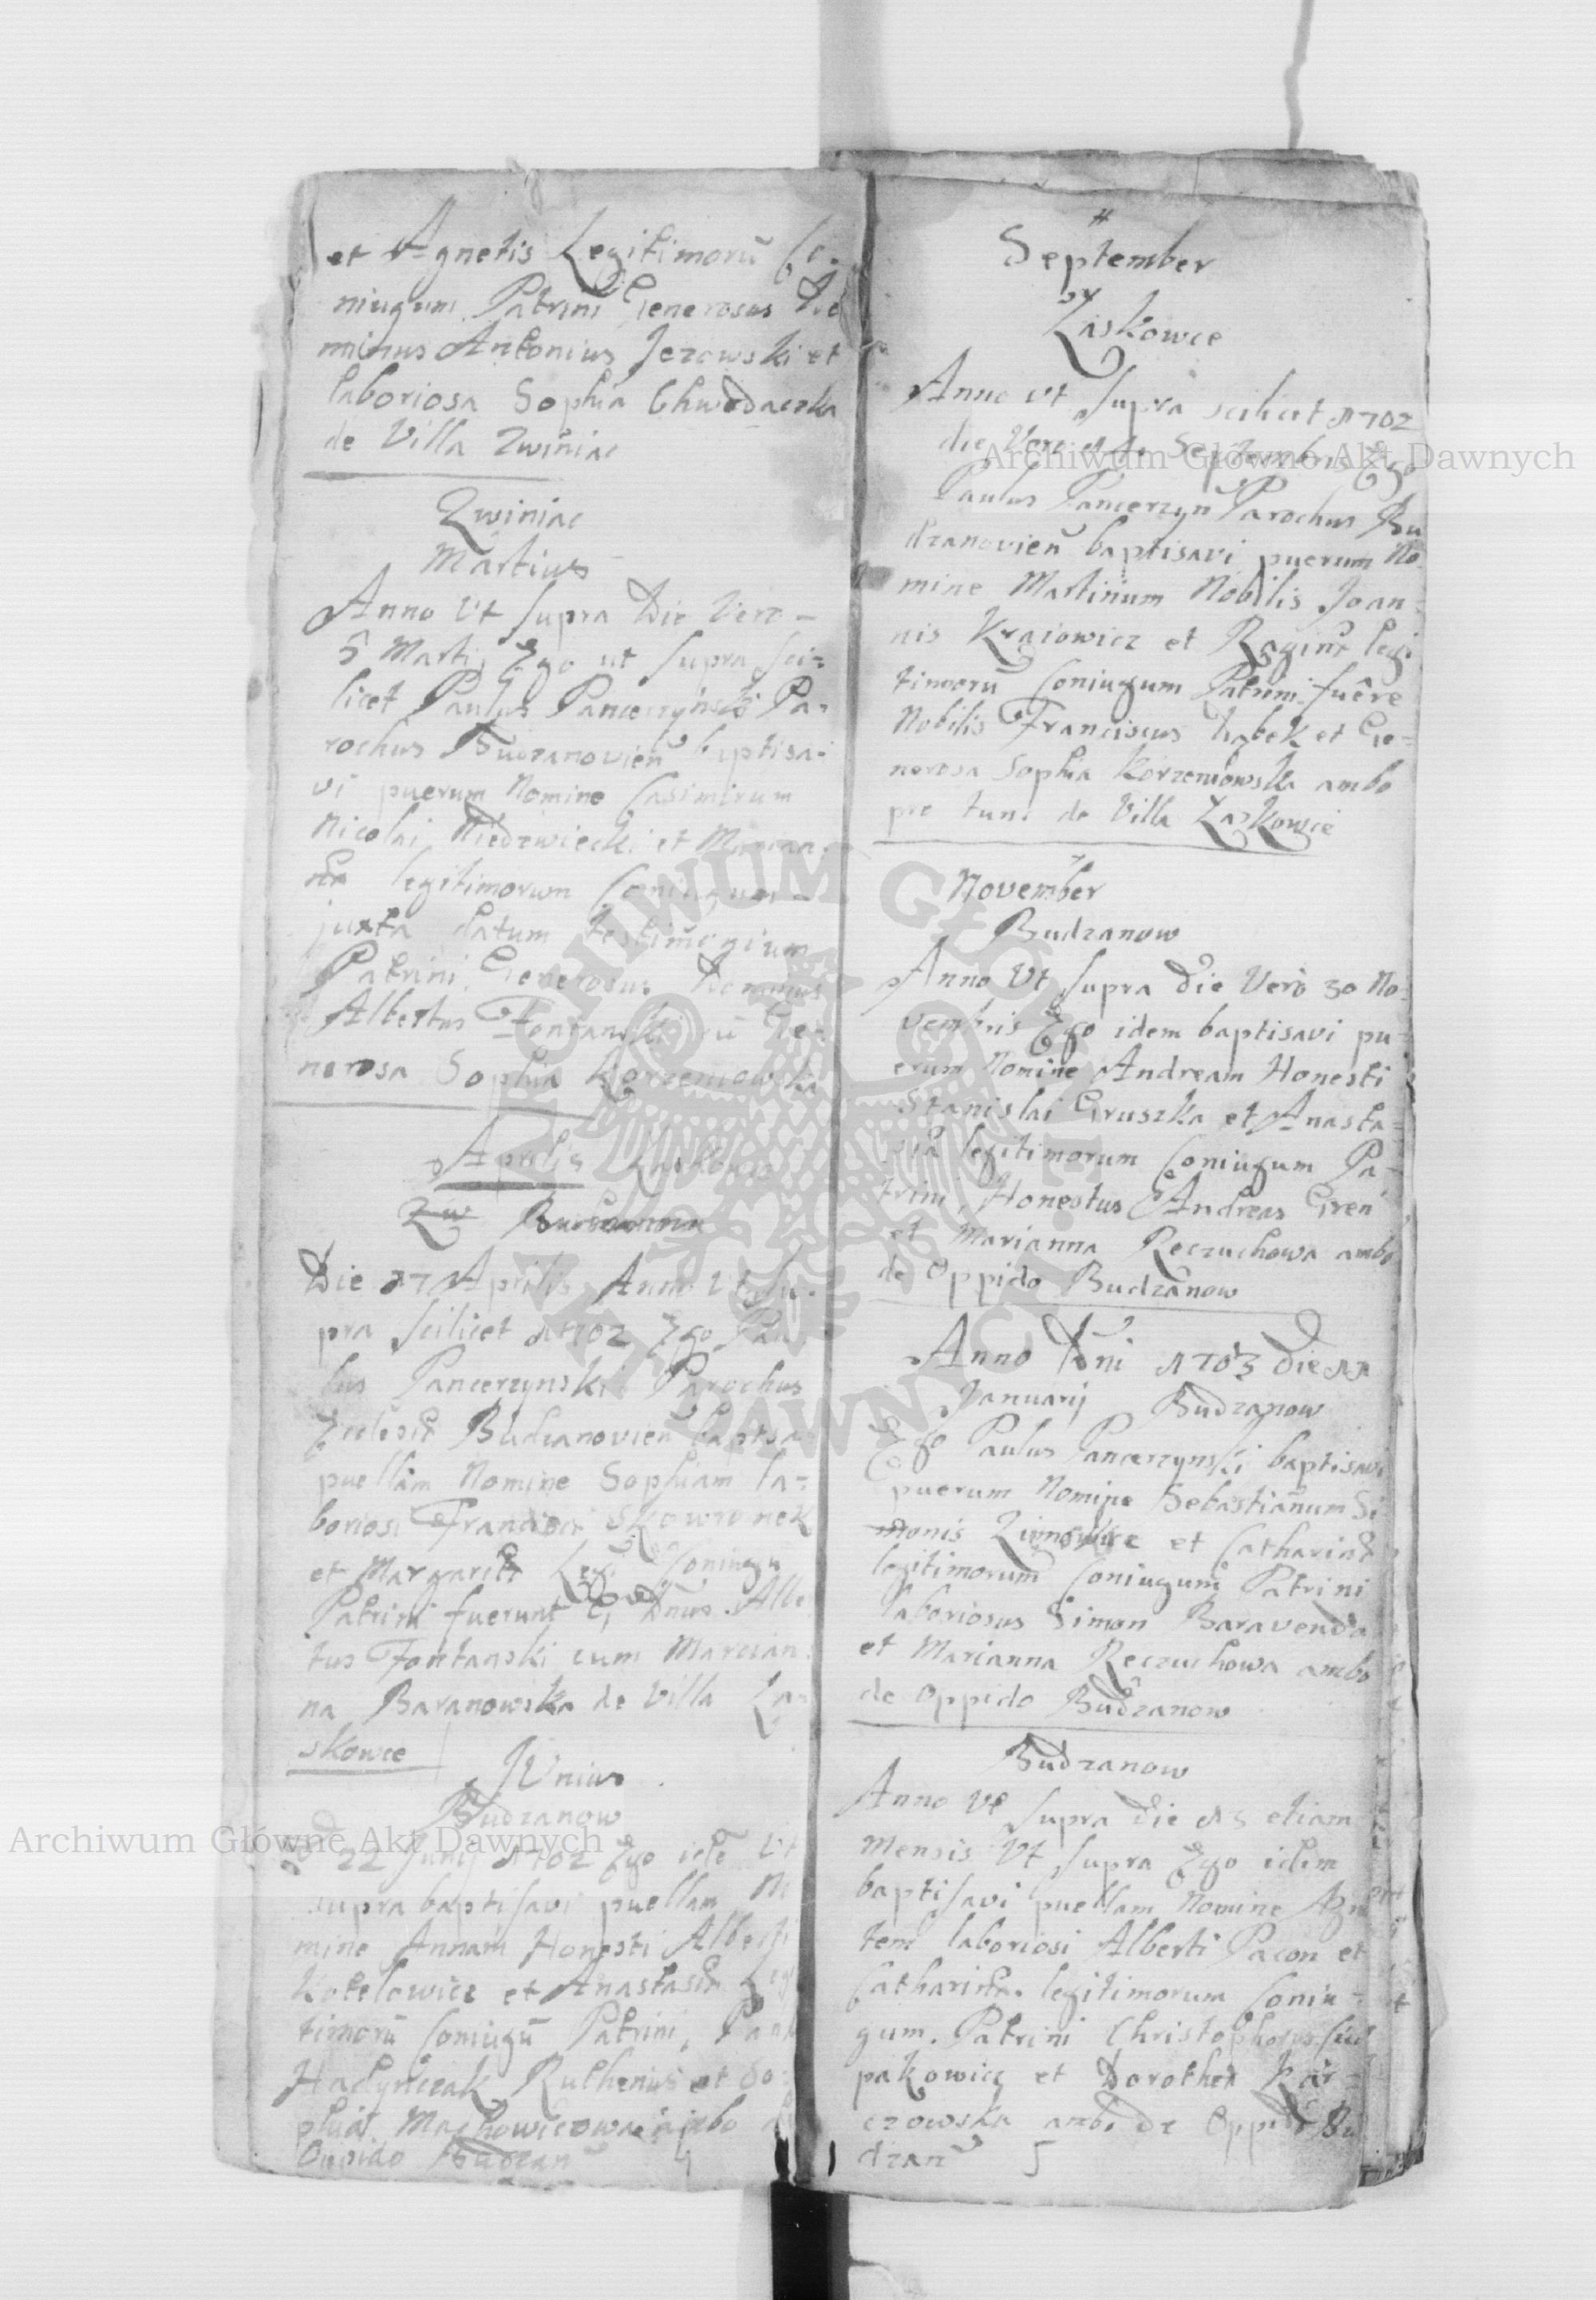 et Agnetis Legitimorū Co-
niugum. Patrini Generosus Do
minus Antonius Jezowski et
laboriosa Sophia
de Villa Zwiniac
Zwiniac
Martius
Anno Ut supra Die Vero
5 Martij Ego ut supra sci-
licet Paulus Pancerzynski Pa-
rochus Budzanovien̄ baptisa-
vi puerum Nomine Casimirum
Nicolai Niedzwiecki et Marian-
næ legitimorum Coniugum
juxta datum testimonium
Patrini, Generosus Dominus
Albertus Fontanski cū Ge-
nerosa Sophia Korzeniowska
Aprilis Laskowce
Zw
Die 17 Aprilis Anno Ut su-
pra scilicet 1702 Ego Pau
lus Pancerzynski Parochus
Ecclesiæ Budzanovien̄ baptisa
puellam Nomine Sophiam la-
boriosi Francisci Skowronek
et Margaritæ Legi Coniugu
Patrini fuerunt G Dnus Albe
tus Fontanski cum Marian
na Baranowska de Villa La
skowce
JUnius
Budzanow
D 22 Junij 1702 Ego Ut
supra baptisavi puellam No
mine Annam Honesti Alberti
Kotelowicz et Anastasiæ Legi
timorū Coniugū Patrini,
Ruthenus et So
phia ambo
Oppido Budzan
4
September
Laskowce
Anno Ut supra scilicet 1702
die Vero Septembris Ego
Paulus Pancerzyn Parochus Bu
dzanovien̄ baptisavi puerum No
mine Martinum Nobilis Joan-
nis Kraiowicz et Reginæ legi
timorū Coniugum Patrini fuêre
Nobilis Franciscus et Ge-
nerosa Sophia Korzeniowska ambo
pro tunc de Villa Laskowce
November
Budzanow
Anno Ut supra Die Vero 30 No-
vembris Ego idem baptisavi pu-
erum Nomine Andream Honesti
Stanislai Gruszka et Anasta-
siæ legitimorum Coniugum Pa-
trini, Honestus Andreas Gren
et Marianna Reczuchowa ambo
de Oppido Budzanow
Anno Dni 1703 Die 11
Januarij Budzanow
Ego Paulus Pancerzynski baptisavi
puerum Nomine Sebastianum Si
monis et Catharinæ
legitimorum Coniugum Patrini
laboriosus Simon Baravenda
et Marianna Reczuchowa ambo
de Oppido Budzanow
Budzanow
Anno Ut supra Die 15 etiam
Mensis Ut supra Ego idem
baptisavi puellam Nomine Agne
tem laboriosi Alberti Pacon et
Catharinæ legitimorum Coniu-
gum. Patrini Christophorus
pakowicz et Dorothea Kar-
czowska ambo de Oppido Bu
dzan
5
Archiwum Główne Akt Dawnych
Archiwum Główne Akt Dawnych
ARCHIWUM GŁÓWNE AKT DAWNYCH